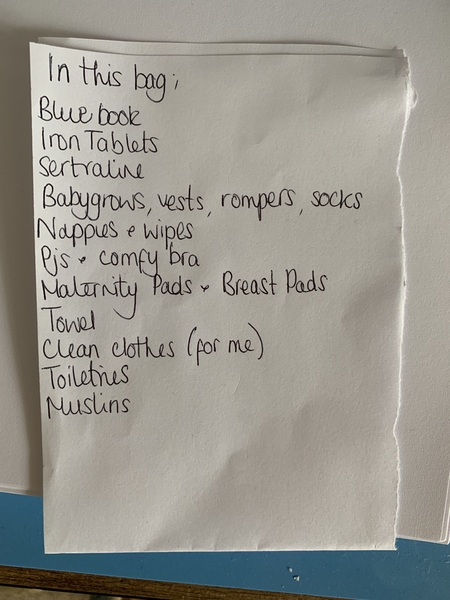 In this bag;
Blue book
Iron Tablets
Sertraline
Babygrows, vests, rompers, socks
Nappies & wipes
Pjs & comfy bra
Maternity Pads & Breast Pads
Towel
Clean clothes (for me)
Toiletries
Muslins